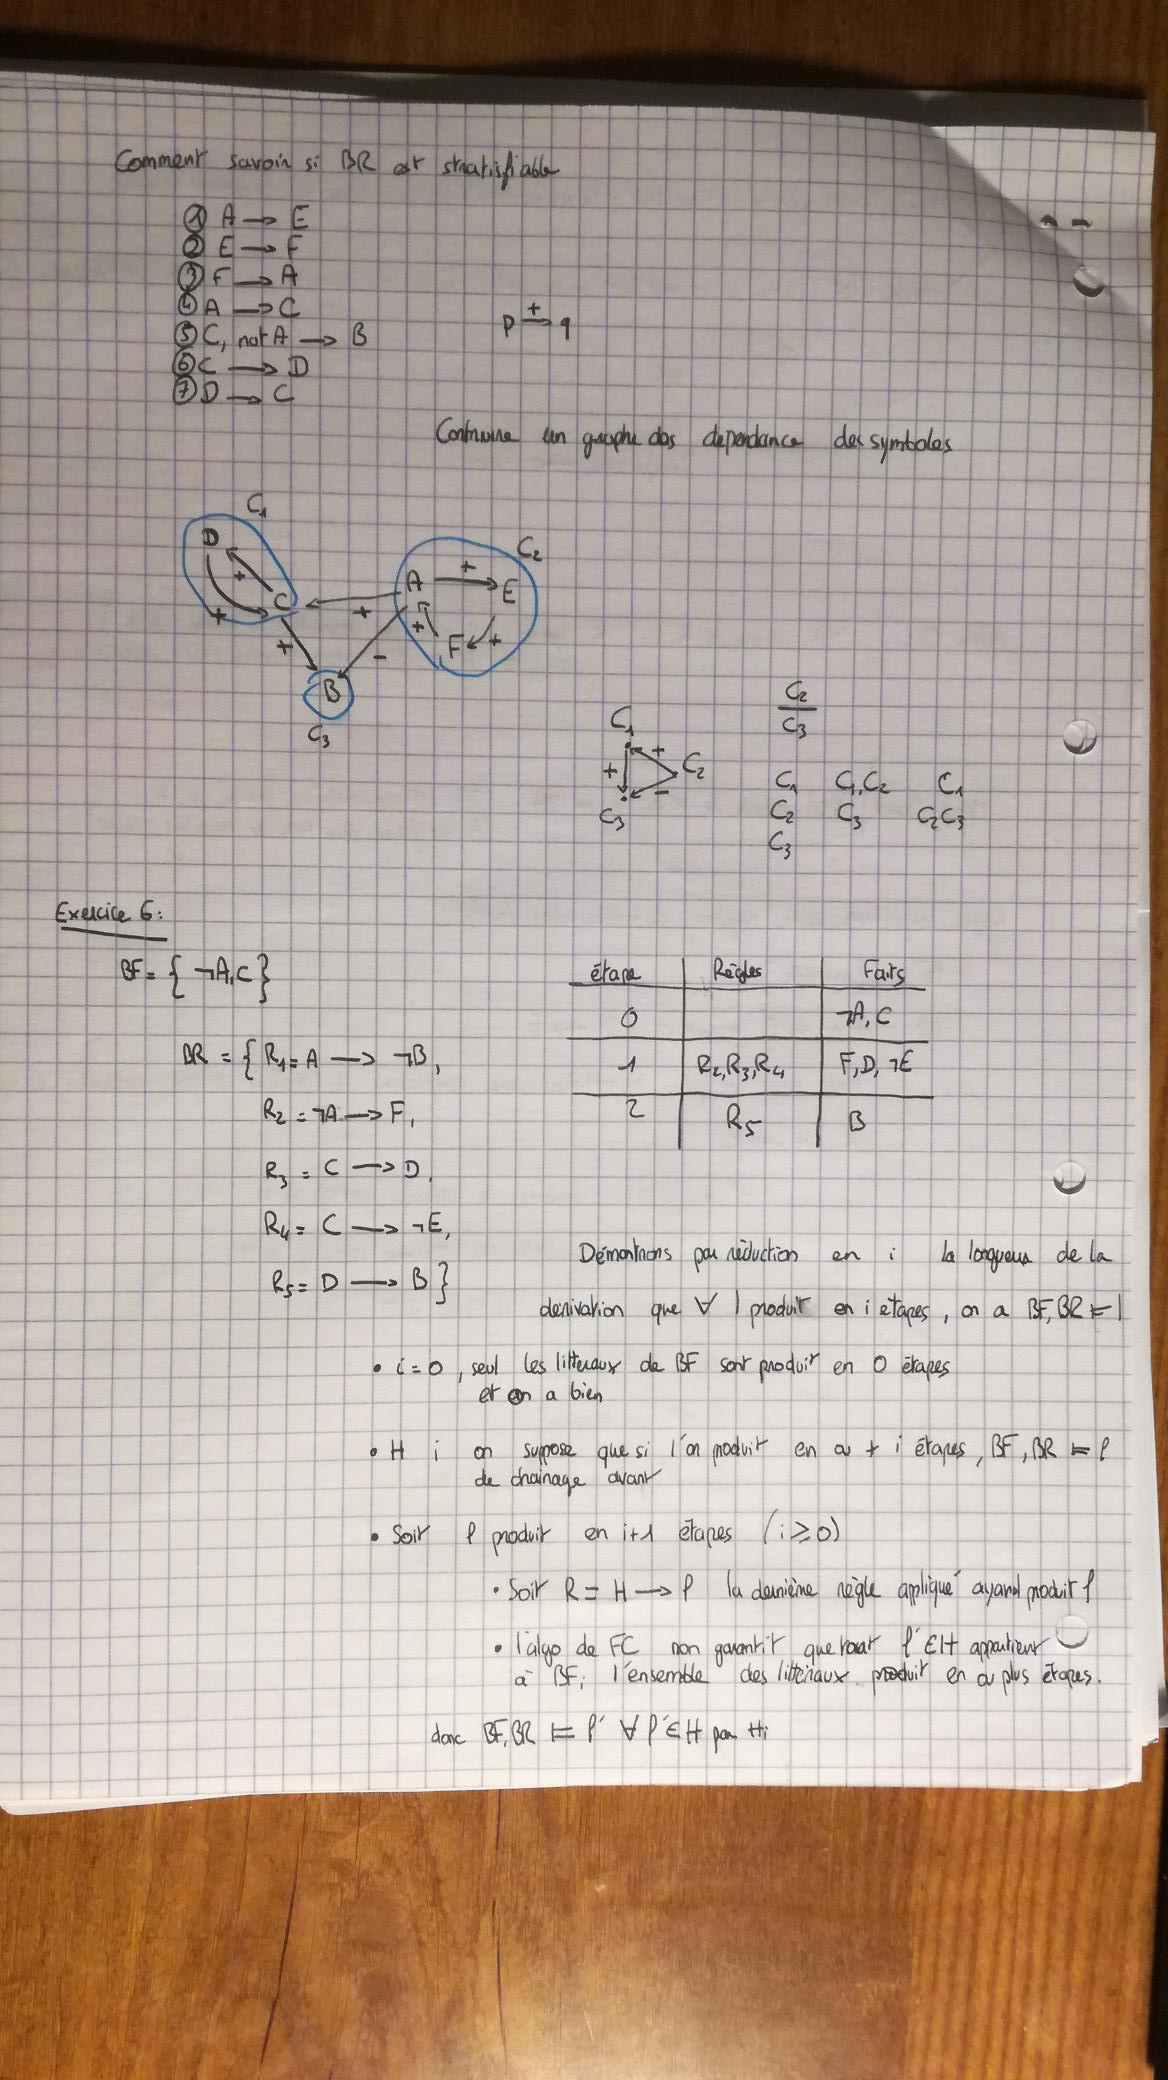 Comment savoir si BR est stratifiable
① A → E
② E → F
③ F → A
④ A → C
⑤ C, not A → B
⑥ C → D
⑦ D → C
p +→ q
Construire un graphe des dependance des symboles
C1
D
+
+
C
+
+
-
B
C3
C2
A
+
E
+
F
+
C1
+
+
C2
-
C3
C2
C3
C1 C1,C2 C1
C2 C3 C2C3
C3
Exercice 6:
BF = { ¬A, C }
BR = { R1 = A → ¬B,
R2 = ¬A → F,
R3 = C → D,
R4 = C → ¬E,
R5 = D → B }
étape Règles Faits
0 ¬A, C
1 R2,R3,R4 F, D, ¬E
2 R5 B
Démontrons par réduction en i la longueur de la
derivation que ∀ l produit en i etapes, on a BF, BR ⊨ l
• i=0, seul les litteraux de BF sont produit en 0 étapes
et on a bien
• H i on suppose que si l'on produit en au + i étapes, BF, BR ⊨ l
de chainage avant
• Soit l produit en i+1 étapes (i ≥ 0)
• Soit R = H → l la dernière règle appliqué ayand produit l
• l'algo de FC non garantit que tout l' ∈ H appartient
à BFi l'ensemble des littéraux produit en au plus étapes.
donc BF, BR ⊨ l' ∀ l' ∈ H par Hi